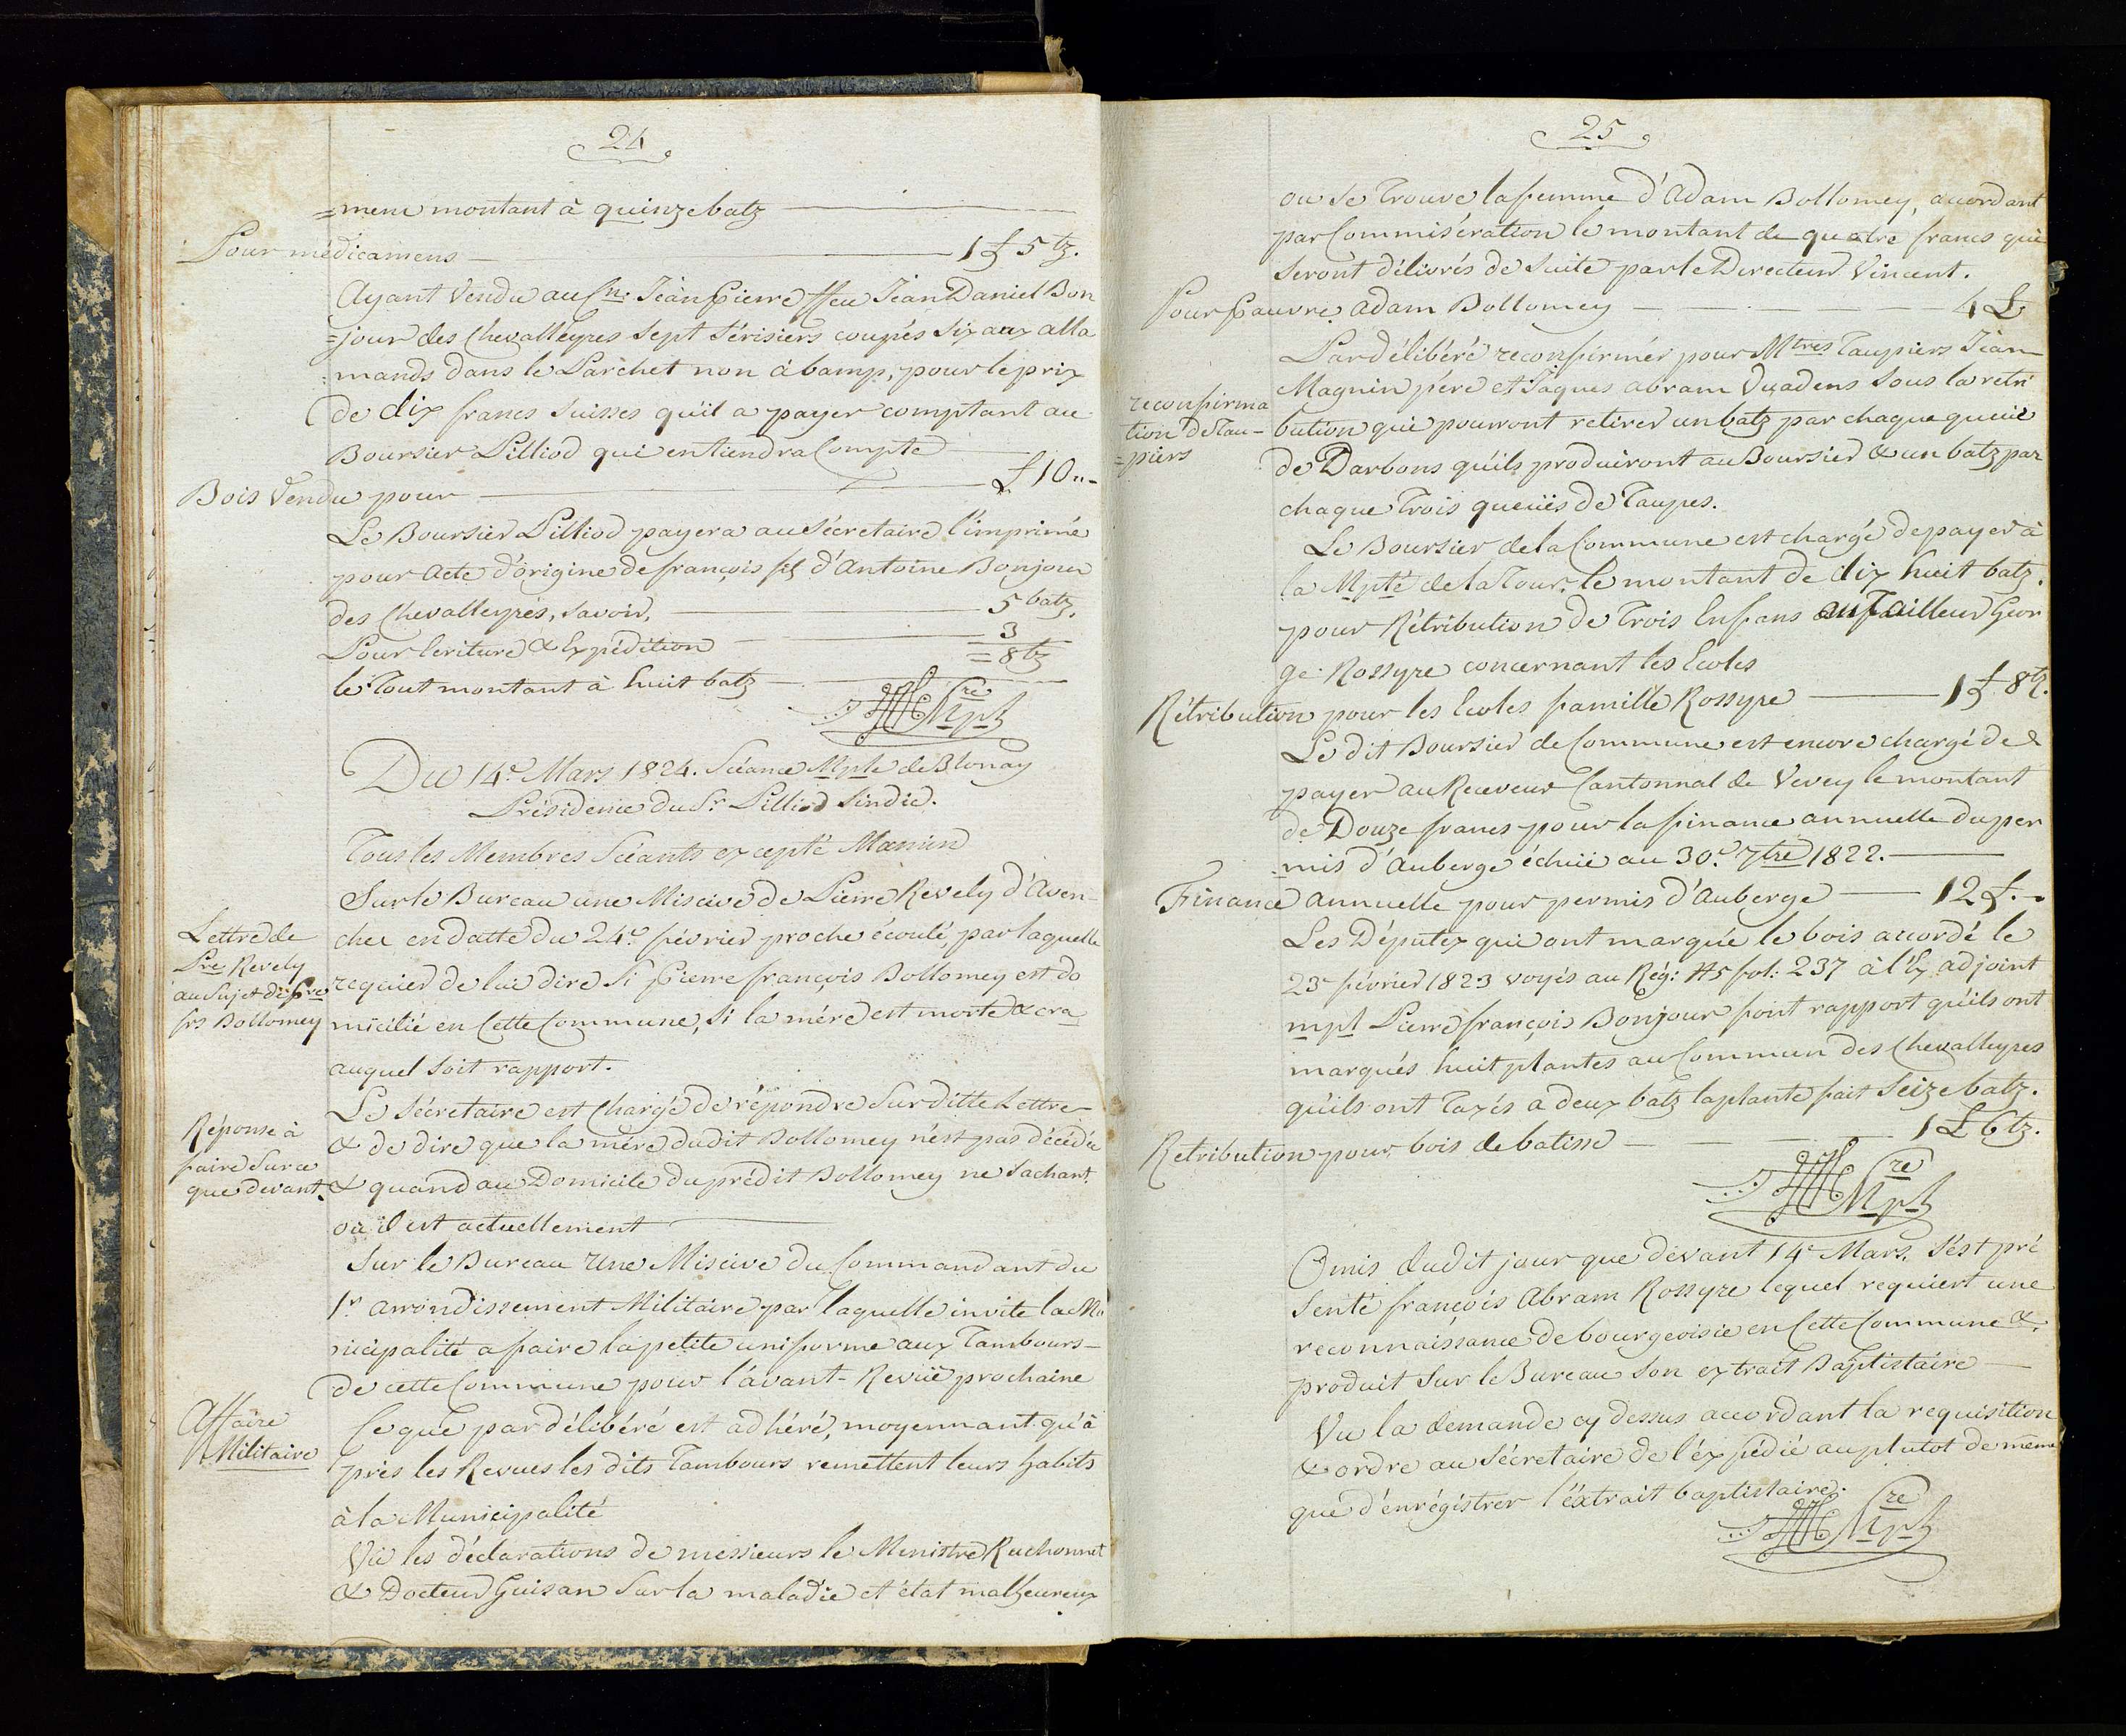 24
=ment montant à quinze batz
Pour médicamens 1 £ 5 tz.
Ayant Vendu au Cn: Jean Pierre ffeu Jean Daniel Bon
=jour des Chevalleyres Sept Sérisiers coupés Six aux alla
=mands dans le Parchet non à bamp, pour le prix
de dix francs Suisses qu'il a payer comptant au
Boursier Pilliod qui en tiendra Compte
Bois Vendu pour £ 10 "-
Le Boursier Pilliod payera au Sécretaire l'imprimé
pour Acte d'origine de françois fs d'Antoine Bonjour
des Chevalleyres, Savoir, 5 batz.
Pour Ecriture & Expédition 3
= 8 tz
le Tout montant à huit batz
Sre Mpl
Du 14e Mars 1824. Séance Mple de Blonay
Présidence du Sr. Pilliod Sindic.
Tous les Membres Séants excepté Mamin
Sur le Bureau une Miscive de Pierre Revely d'Aven-
Lettre de
Pre Revely
au Sujet de Pre
frs Bollomey
cher en datte du 24e février proche écoulé, par laquelle
requier de lui dire Si Pierre françois Bollomey est do
micilié en Cette Commune, Si la mére est morte &cra
auquel Soit rapport.
Réponse à
faire Sur ce
que devant.
Le Sécretaire est Chargé de répondre Sur ditte Lettre
& de dire que la mére dudit Bollomey n'est pas décédée
& quand au Domicile du prédit Bollomey ne Sachant
où il est actuellement
Sur le Bureau Une Miscive du Commandant du
1r. arrondissement Militaire par laquelle invite la Mu
nicipalité a faire la petite uniforme aux Tambours-
de cette Commune pour l'avant-Revuë prochaine
Affaire
Militaire
Ce que par délibéré est adhéré, moyennant qu'à
près les Revues les dits Tambours remettent leurs habits
à la Municipalité
Vû les déclarations de messieurs le Ministre Ruchonnet
& Docteur Guisan Sur la maladie et état malheureux
25
ou Se Trouve la femme d'Adam Bollomey, acordant
par Commisération le montant de quatre francs qui
Seront délivrés de Suite par le Directeur Vincent.
Pour pauvre Adam Bollomey 4 £
reconfirma
tion de Tau-
=piers
Par délibéré reconfirmér pour Mtres Taupiers Jean
Magnin pére et Jaques abram Duadens Sous la retri
bution qui pourront retirer un batz par chaque queuë
de Darbons qu'ils produiront au Boursier & un batz par
chaque Trois queuës de Taupes.
Le Boursier de la Commune est chargé de payer à
la Mpté de la Tour. le montant de dix huit batz.
pour Rétribution de Trois Enfans au Tailleur Geor
ge Rossyre concernant les Ecoles
Rétribution pour les Ecoles famille Rossyre 1 £ 8 tz.
Le dit Boursier de Commune est encore chargé de
payer au Receveur Cantonnal de Vevey le montant
de Douze francs pour la finance annuelle du per
=mis d'Auberge échuë au 30e. 7bre 1822.
Finance Annuelle pour permis d'Auberge 12 £.-
Les Députez qui ont marqué le bois accordé le
23e février 1823 voyés au Rég: N5 fol: 237 à l'Ex adjoint
mpl Pierre françois Bonjour font rapport qu'ils ont
marqués huit plantes au Commun des Chevalleyres
qu'ils ont Taxés a deux batz la plante fait Seize batz.
Retribution pour bois de batisse 1 £ 6 tz.
Sre Mpl
Omis dudit jour que devant 14e Mars. S'est pré
Senté françois Abram Rossyre lequel requiert une
reconnaissance de bourgeoisie en Cette Commune &
produit Sur le Bureau Son extrait Baptistaire
Vu la demande cy dessus accordant la requisition
& ordre au Sécretaire de l'éxpédié au plutot de même
que d'enrégistrer l'éxtrait baptistaire.
Sre Mpl